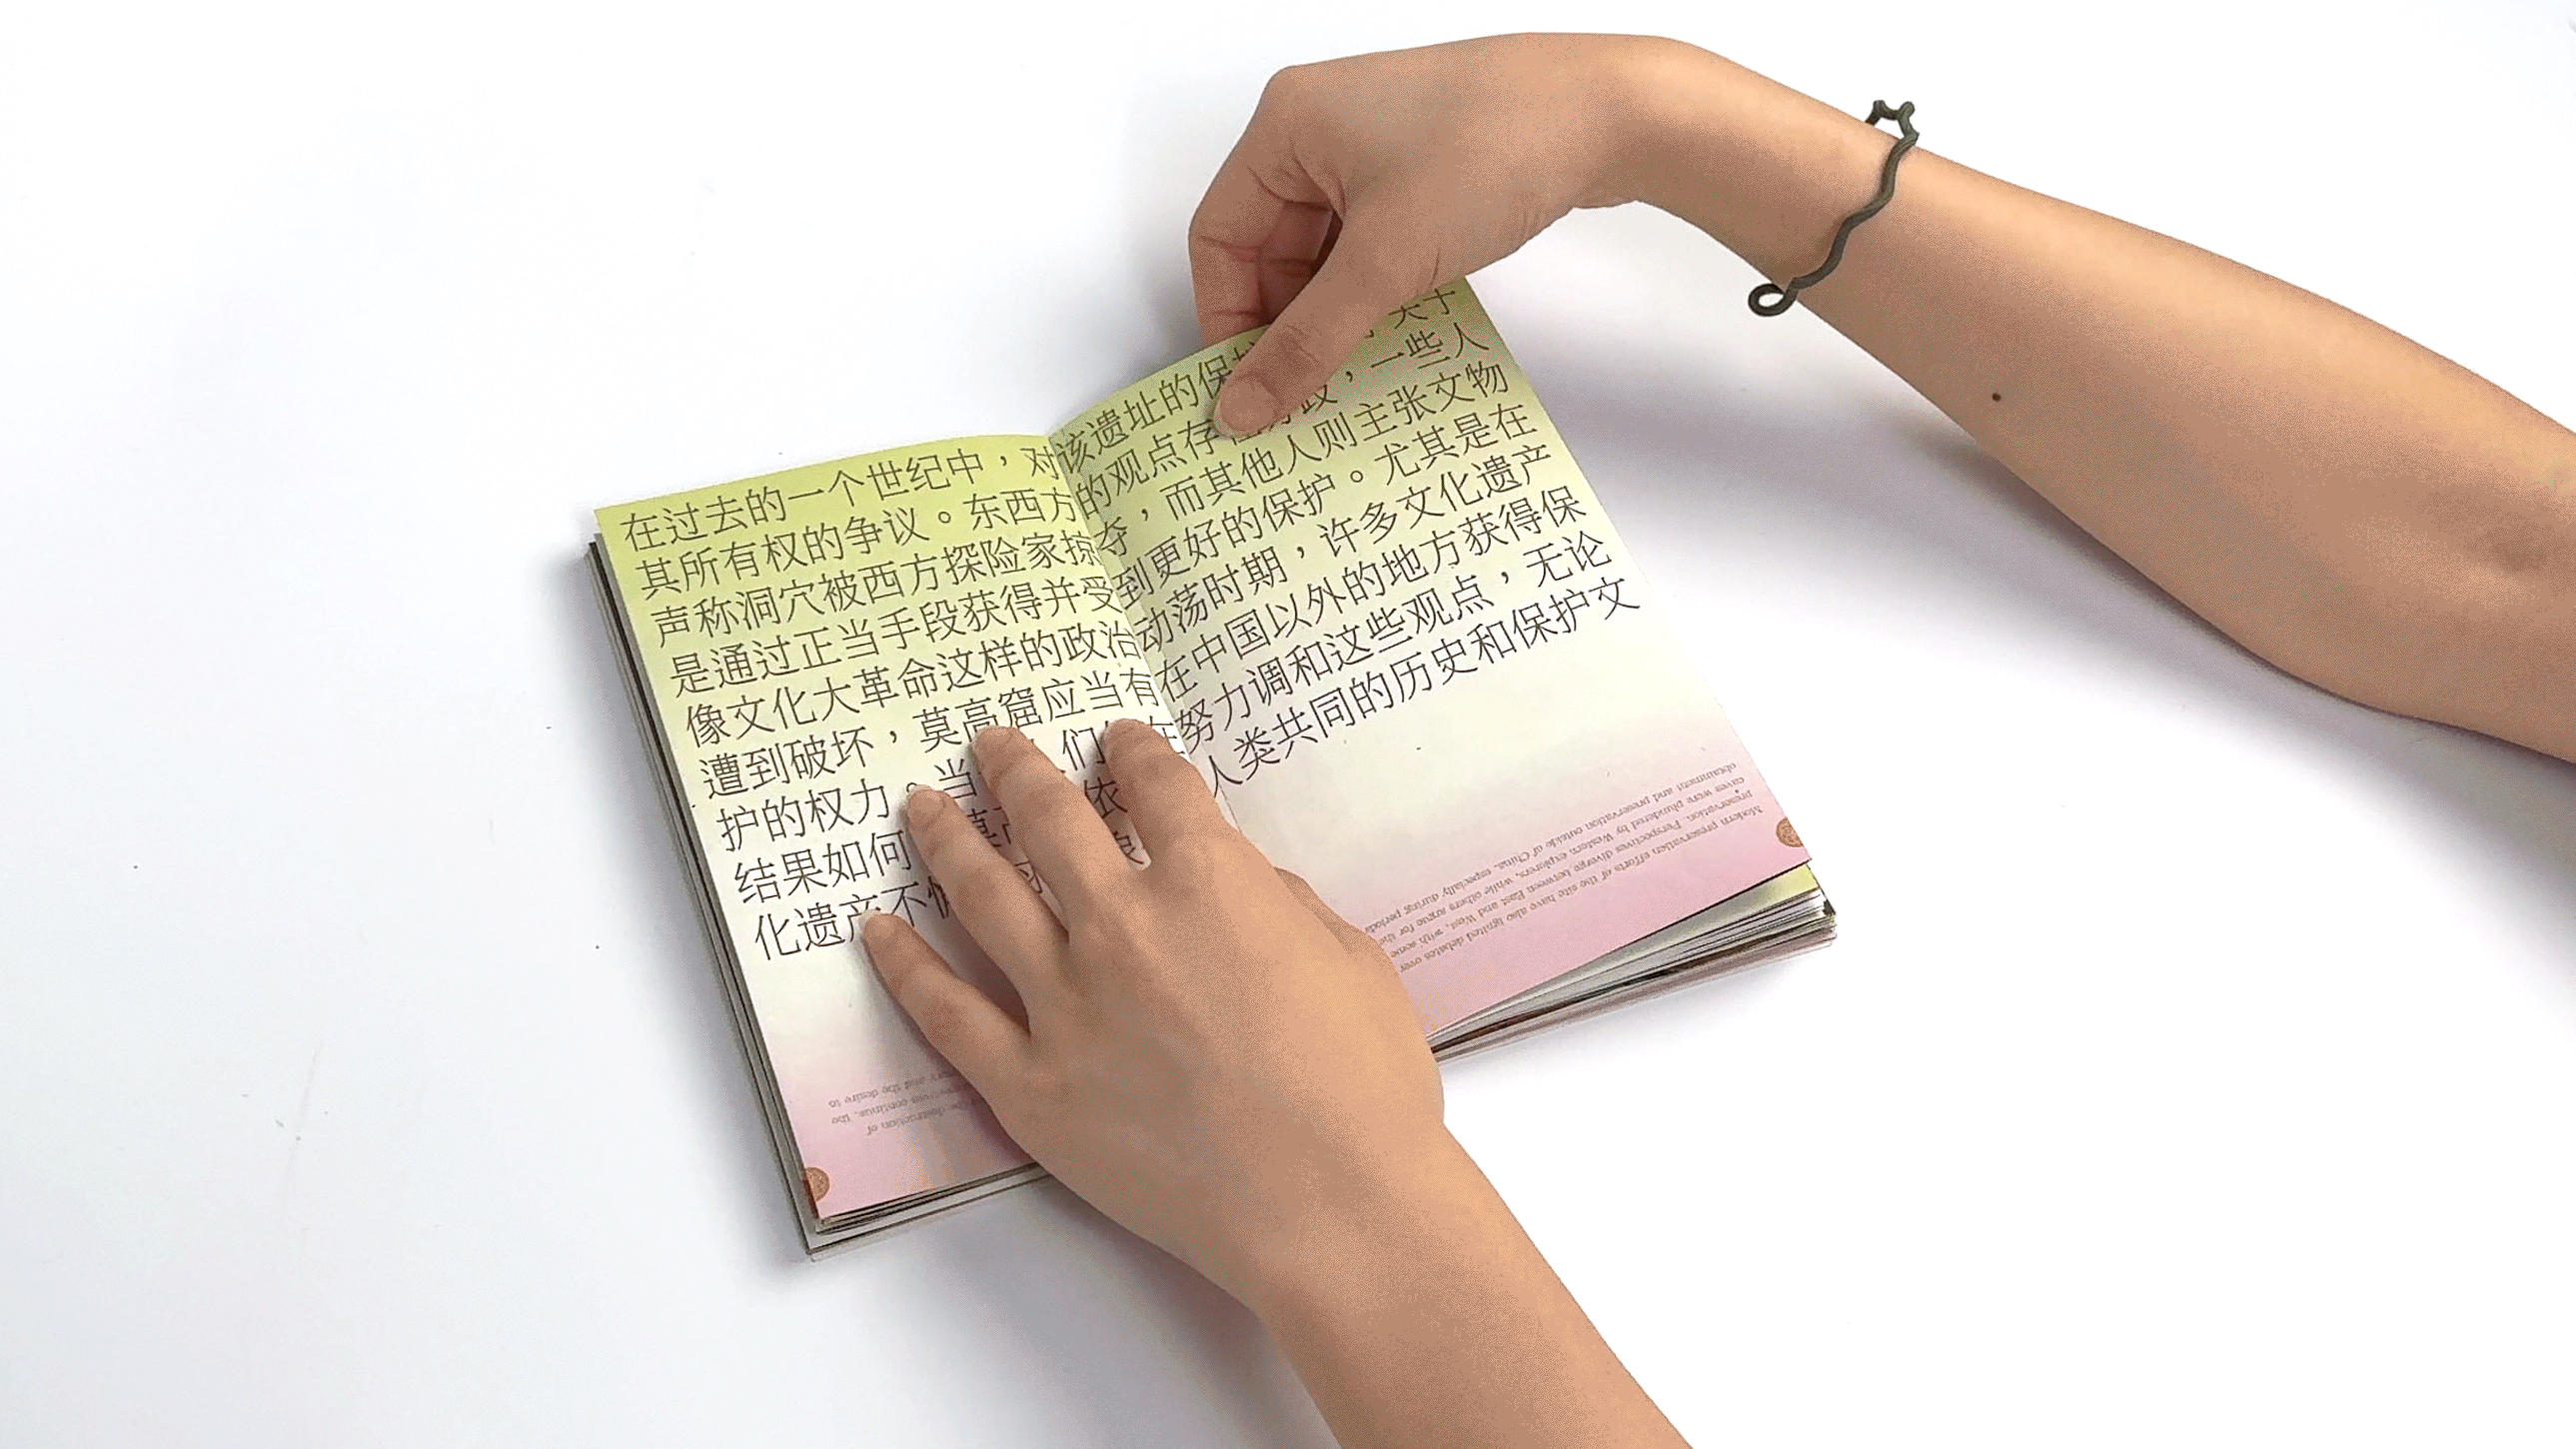 在过去的一个世纪中，对该遗址的保护 关于
其所有权的争议。东西方的观点存在分歧，一些人
声称洞穴被西方探险家掠夺，而其他人则主张文物
是通过正当手段获得并受到更好的保护。尤其是在
像文化大革命这样的政治动荡时期，许多文化遗产
遭到破坏，莫高窟应当有在中国以外的地方获得保
护的权力。当 人们 在努力调和这些观点，无论
结果如何 莫高 依 人类共同的历史和保护文
化遗产不
Modern preservation efforts of the site have also ignited debates over
preservation. Perspectives diverge between East and West, with some
caves were plundered by Western explorers, while others argue for the
obtainment and preservation outside of China, especially during periods
the destruction of
continue, the
and the desire to